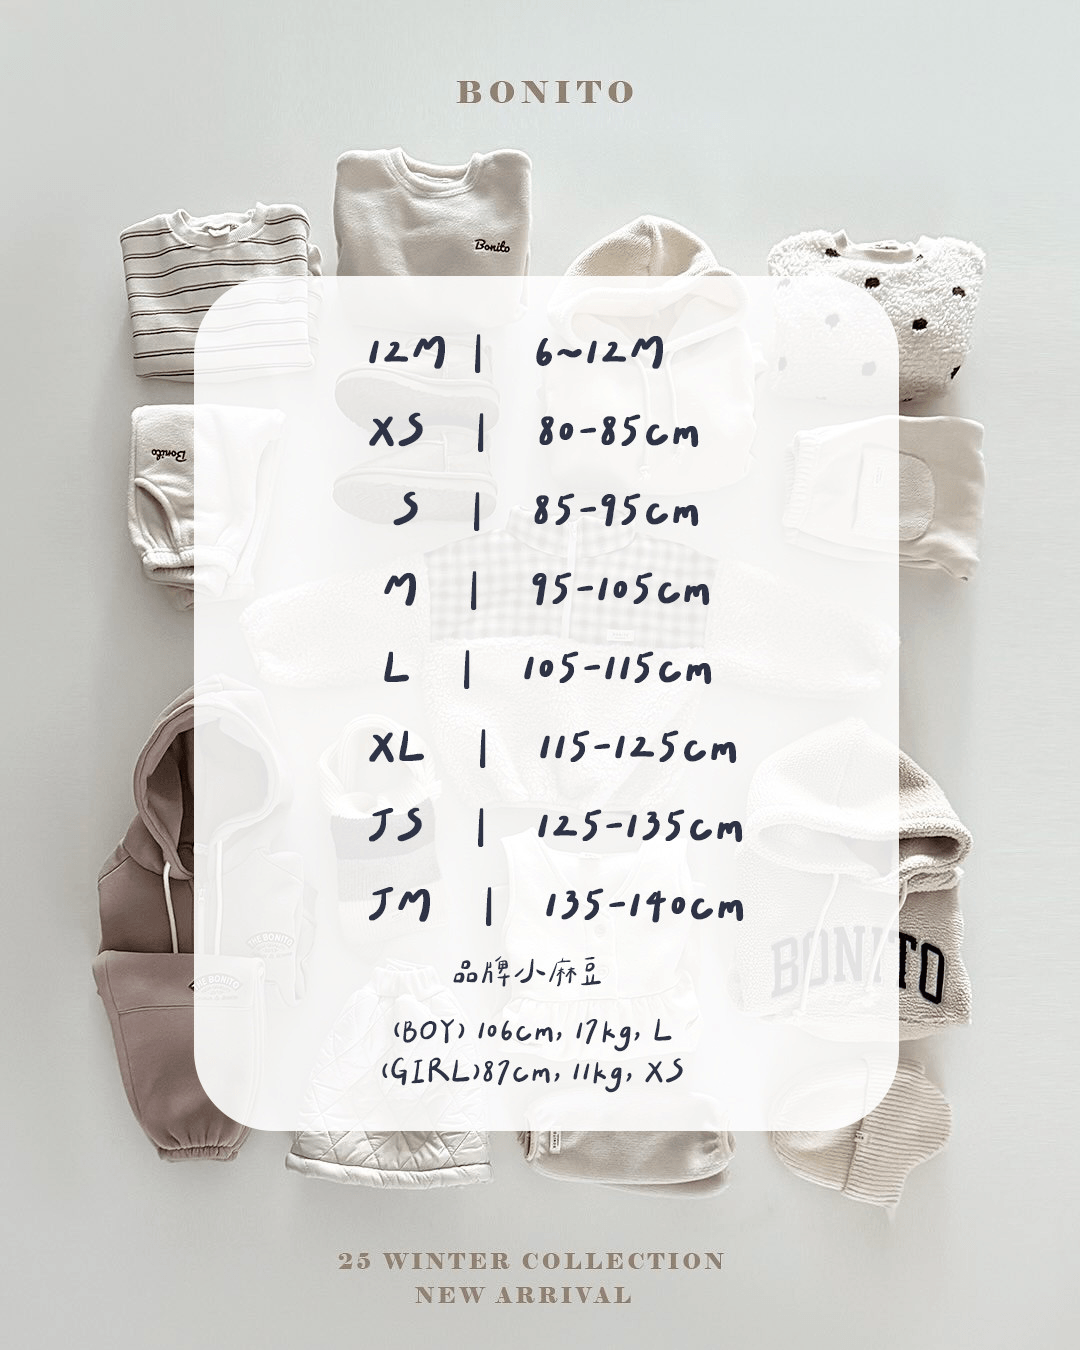 BONITO
Bonito
Bonito
12M | 6~12M
XS | 80-85cm
S | 85-95cm
M | 95-105cm
L | 105-115cm
XL | 115-125cm
JS | 125-135cm
JM | 135-140cm
BONITO
THE BONITO
THE BONITO
品牌小麻豆
(BOY) 106cm, 17kg, L
(GIRL)87cm, 11kg, XS
25 WINTER COLLECTION
NEW ARRIVAL